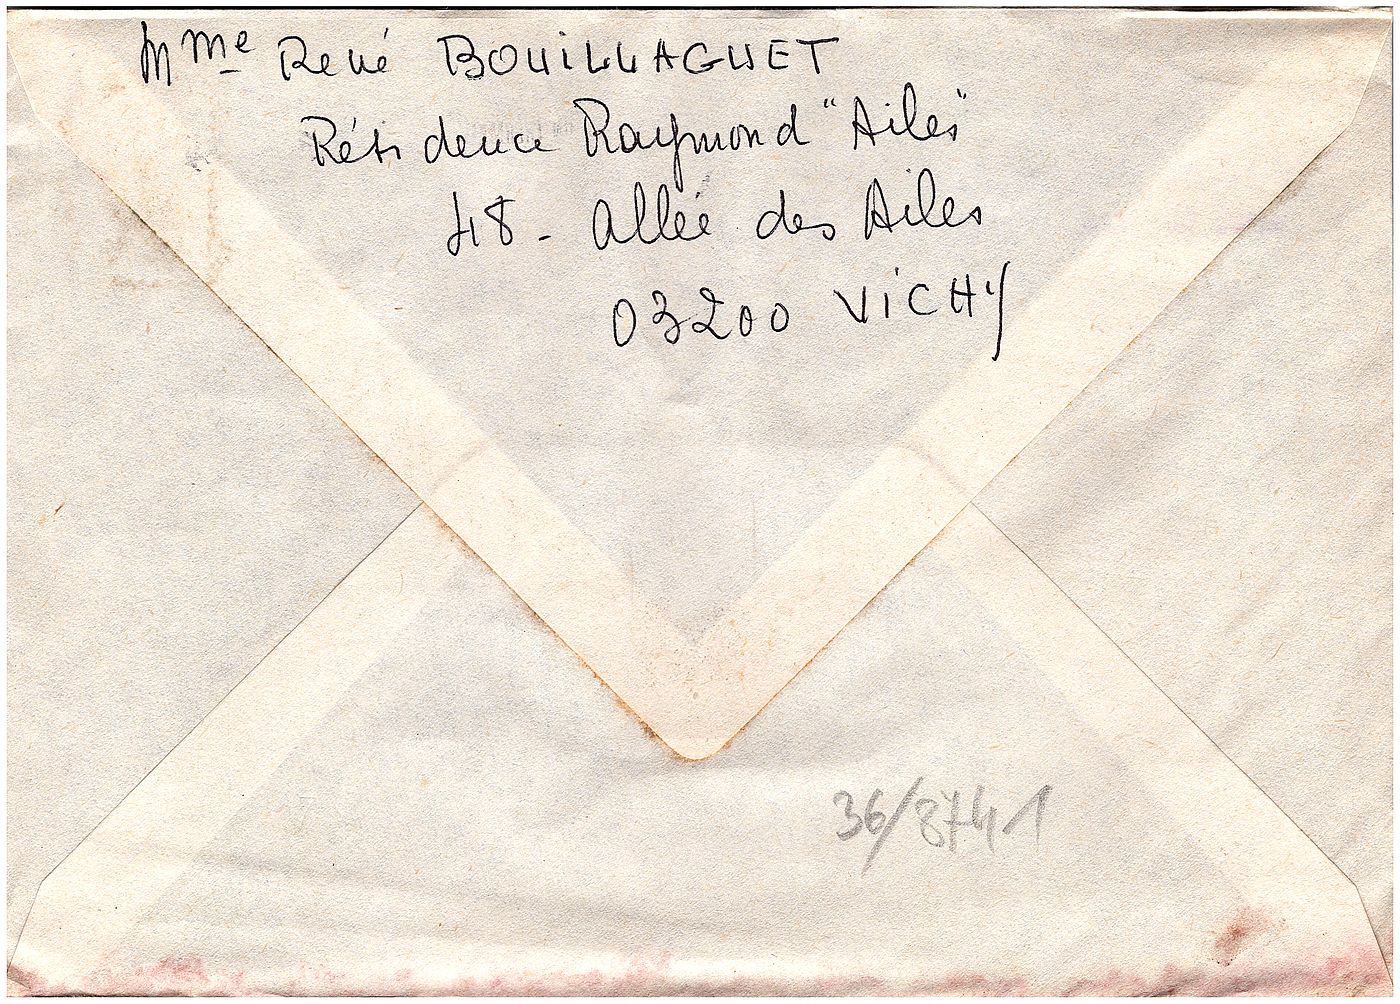 Mme René BOUILLAGUET
Résidence Raymond "Ailes"
48 - Allée des Ailes
03200 VICHY
36/8741